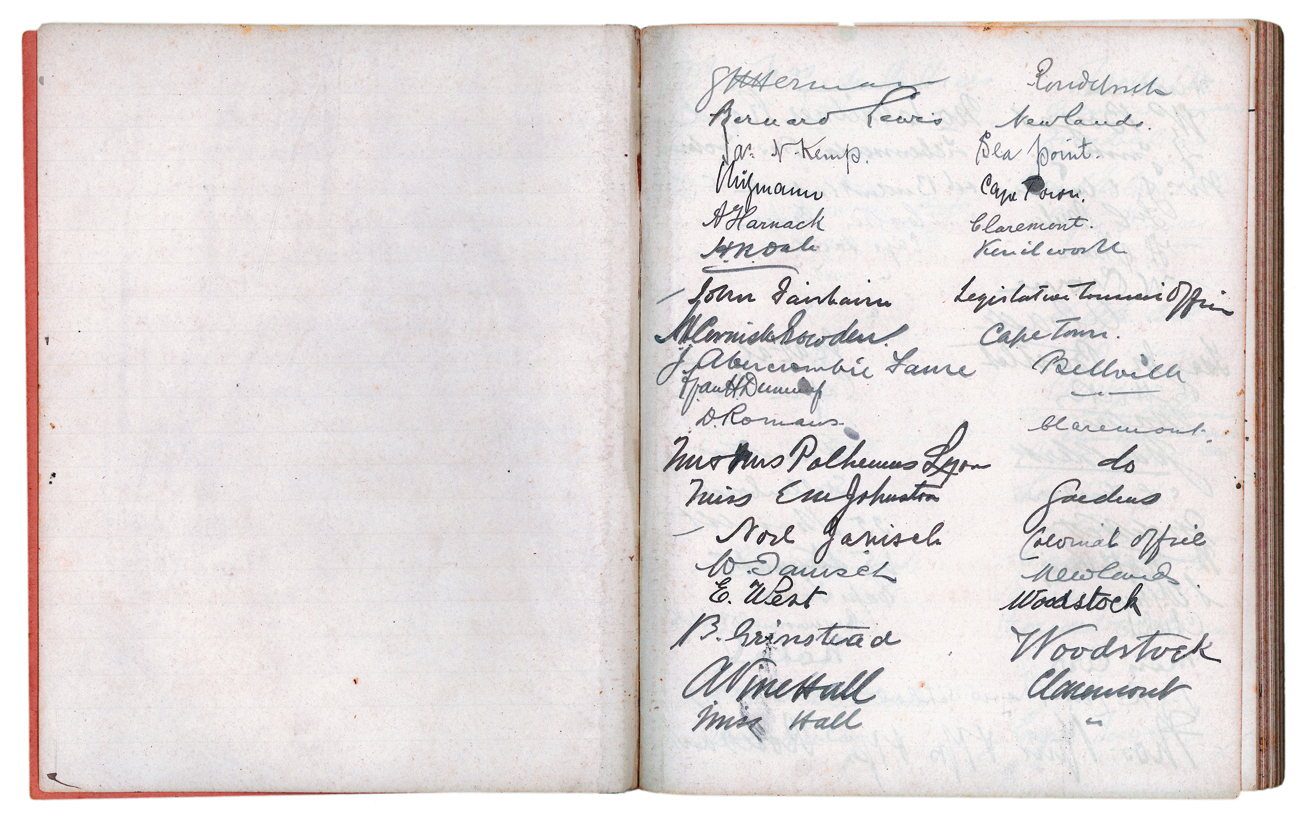 Herman Rondebosch
Bernard Lewis Newlands.
N. Kemp. Sea point.
Cape Town.
A Harnack Claremont.
Kenilworth
John Fairbairn Legislative Council Office
Cape Town.
J. Abercrombie Bellville
D. Romans. Claremont.
Polhemus Lyon do
Miss Em Johnston Gardens
Noel Janisch Colonial Office
W. Janisch Newlands
E. West Woodstock
B. Grinstead Woodstock
Hall Claremont
Miss Hall "